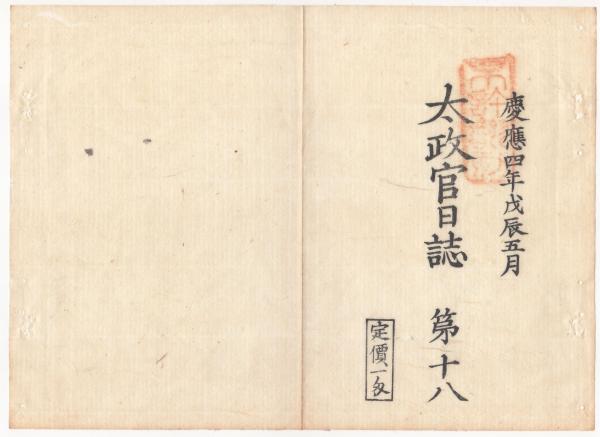 慶應四年戊辰五月
太政官日誌 第十八
定價一匁